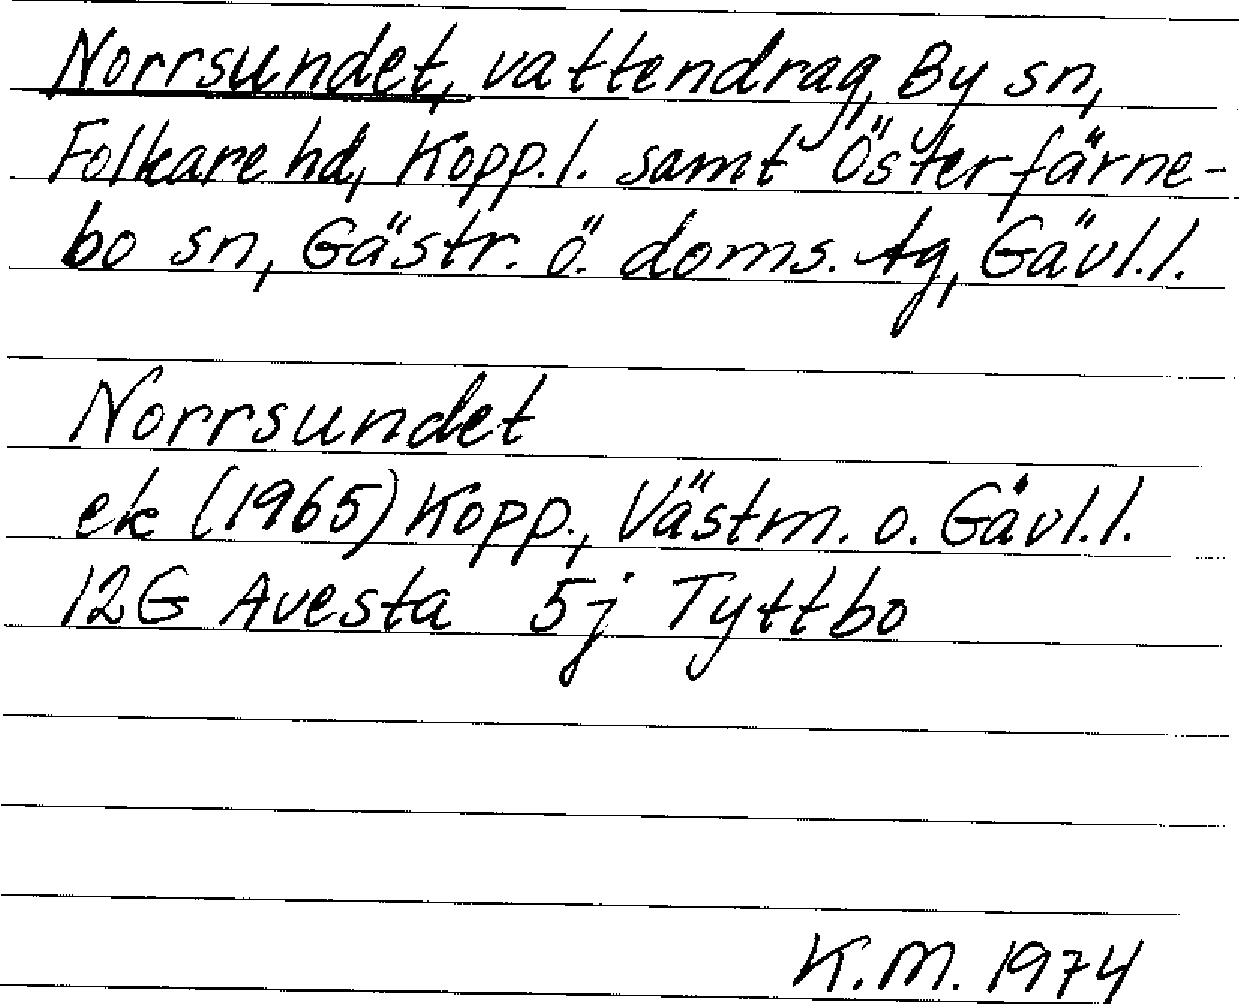 Norrsundet, vattendrag, By sn,
Folkare hd, Kopp.l. samt Österfärne-
bo sn, Gästr. ö. doms. tg, Gävl.l.
Norrsundet
ek (1965) Kopp., Västm. o. Gävl.l.
12G Avesta 5j Tyttbo
K.M. 1974